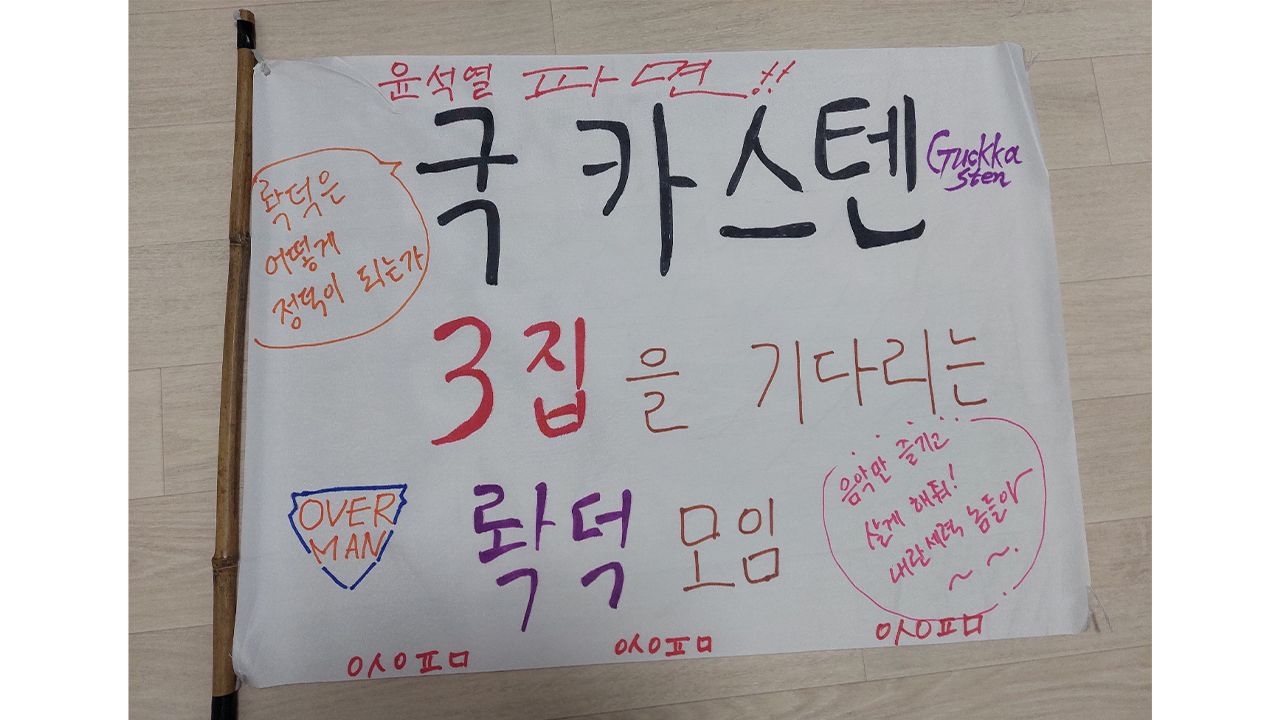 윤석열 파면!!
국카스텐
Guckka
sten
롹덕은
어떻게
정덕이 되는가
3집을 기다리는
음악만 즐기고
살게 해줘!
내란세력 놈들아
~ ~.
OVER
MAN
롹덕 모임
ㅇㅅㅇㅍㅁ
ㅇㅅㅇㅍㅁ
ㅇㅅㅇㅍㅁ